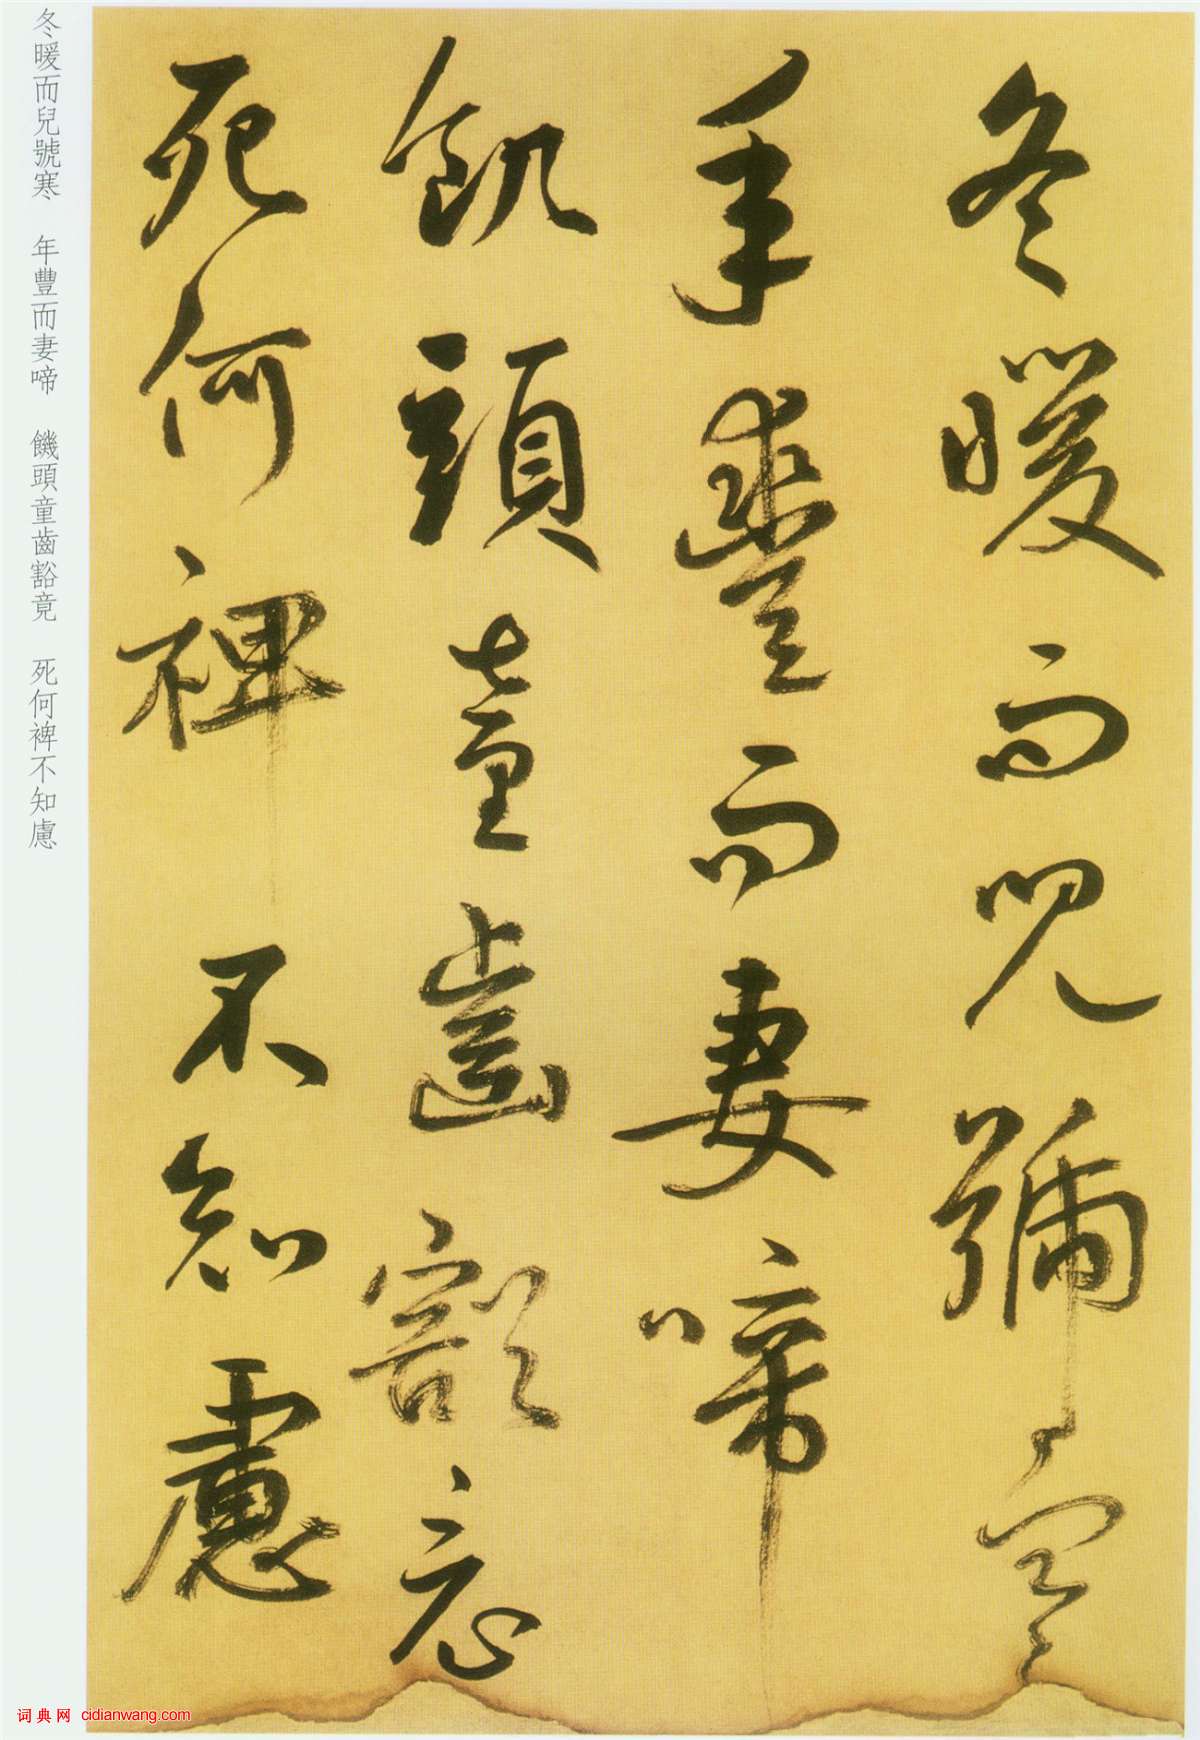 冬暖而兒號寒
年豐而妻啼
飢頭童齒豁竟
死何裨不知慮
冬暖而兒號寒　年豐而妻啼　饑頭童齒豁竟　死何裨不知慮
词典网 cidianwang.com